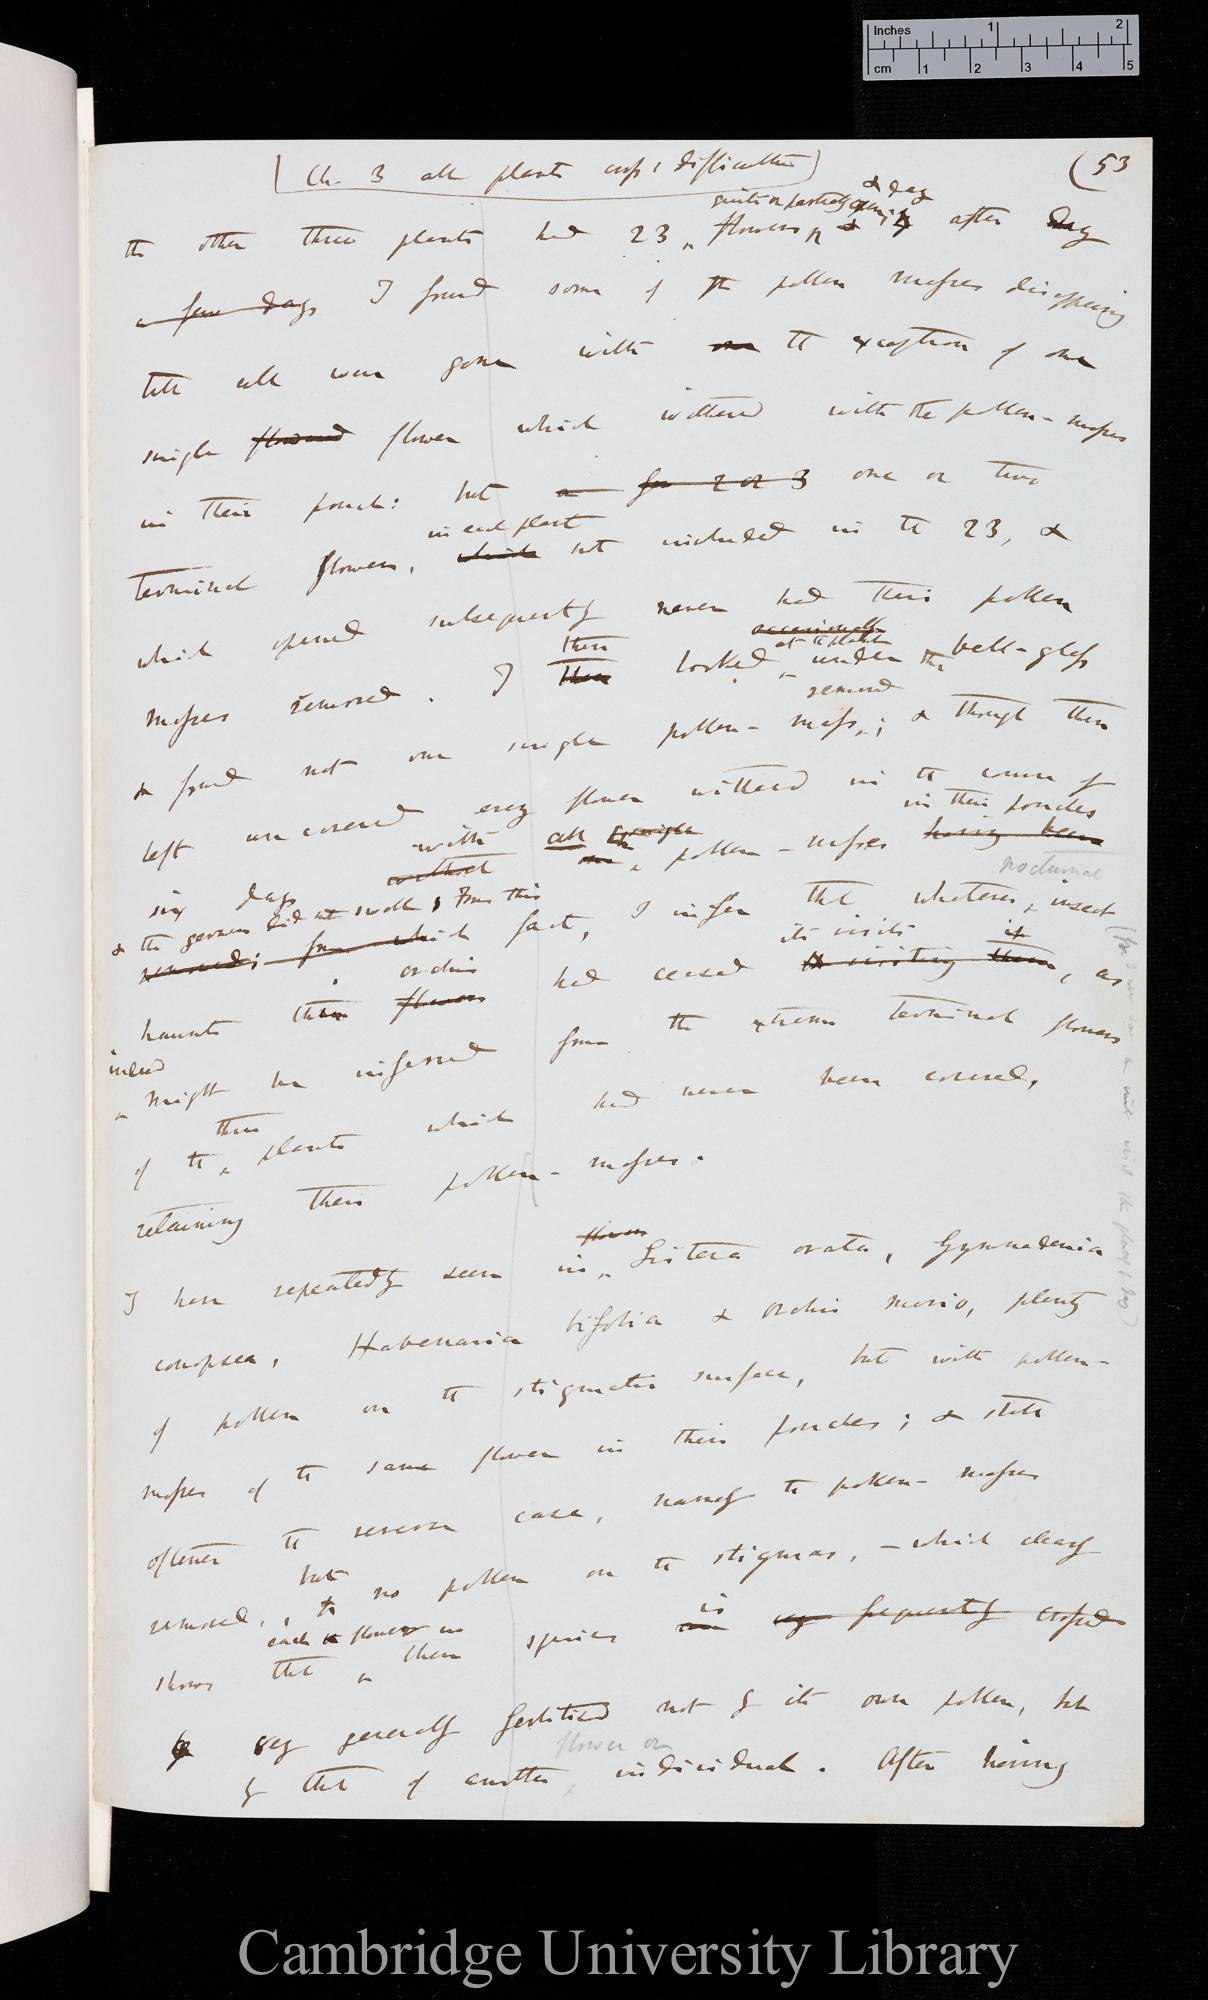 Inches 1 2
cm 1 2 3 4 5
(Ch. 3 all plants cross; difficulties) (53
quite or partially open; & day
the other three plants had 23 flowers & by after day
a few days I found some of the pollen masses disappearing
till all were gone with one the exception of one
single flowered flower which withered with the pollen-masses
in their pouch: but a few 2 or 3 one or two
in each plant
terminal flowers, which not included in the 23, &
which opened subsequently never had their pollen
then occasionally at the plant
masses removed. I then looked under the bell-glass
removed
& found not one single pollen-mass; & though then
left uncovered every flower withered in the course of
with all the single in their pouches
six days without one pollen-masses having been
& the germens did not swell; From this nocturnal
removed; from which fact, I infer that whatever insect
orchis its visits it
haunts this flowers had ceased visiting them, as
indeed
might be inferred from the extreme terminal flowers
three
of the plants which had never been covered,
retaining their pollen-masses.
flowers
I have repeatedly seen in Listera ovata, Gymnadenia
conopsea, Habenaria bifolia & Orchis morio, plenty
of pollen on the stigmatic surface, but with pollen-
masses of the same flower in their pouches; & still
oftener the reverse case, namely the pollen-masses
but
removed, no pollen on the stigmas, – which clearly
each flower in is
shows that these species are very frequently crossed
be very generally fertilised not by its own pollen, but
flower or
by that of another individual. After having
Cambridge University Library